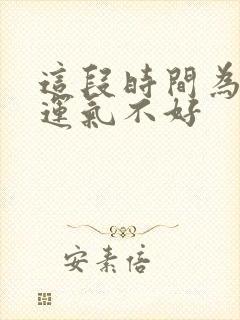 這段時間為
運氣不好
安素倍